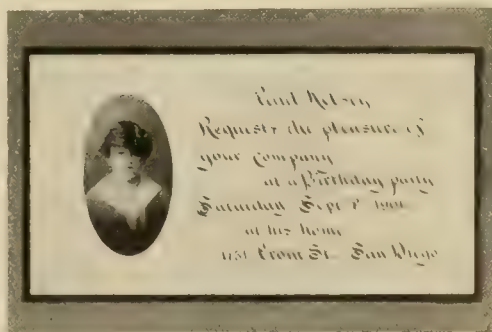 Requests the pleasure of
your company
at a Birthday party
Saturday Sept
at his home
St. San Diego